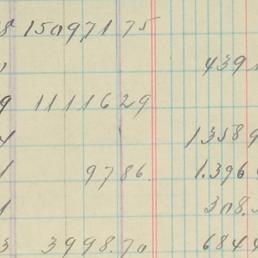 8 150971 75
439
9 11116 29
4 13589
1 97 86. 1.396
1 308.
3 3998.70 6844